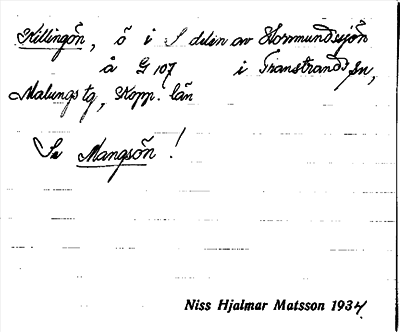 Killingön, ö i S delen av Horrmundsjön
å G 107 i Transtrands sn,
Malungs tg, Kopp. län
Se Mangsön!
Niss Hjalmar Matsson 1934.